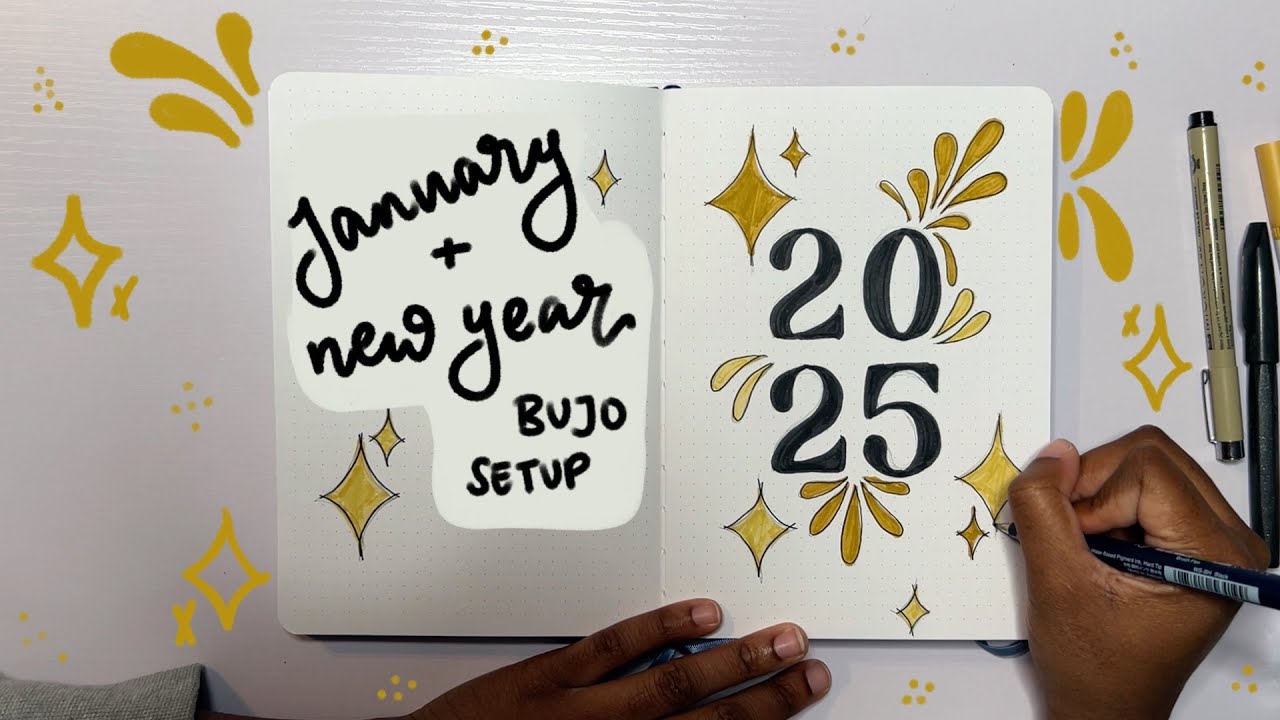 January
+
new year
BUJO
SETUP
20
25